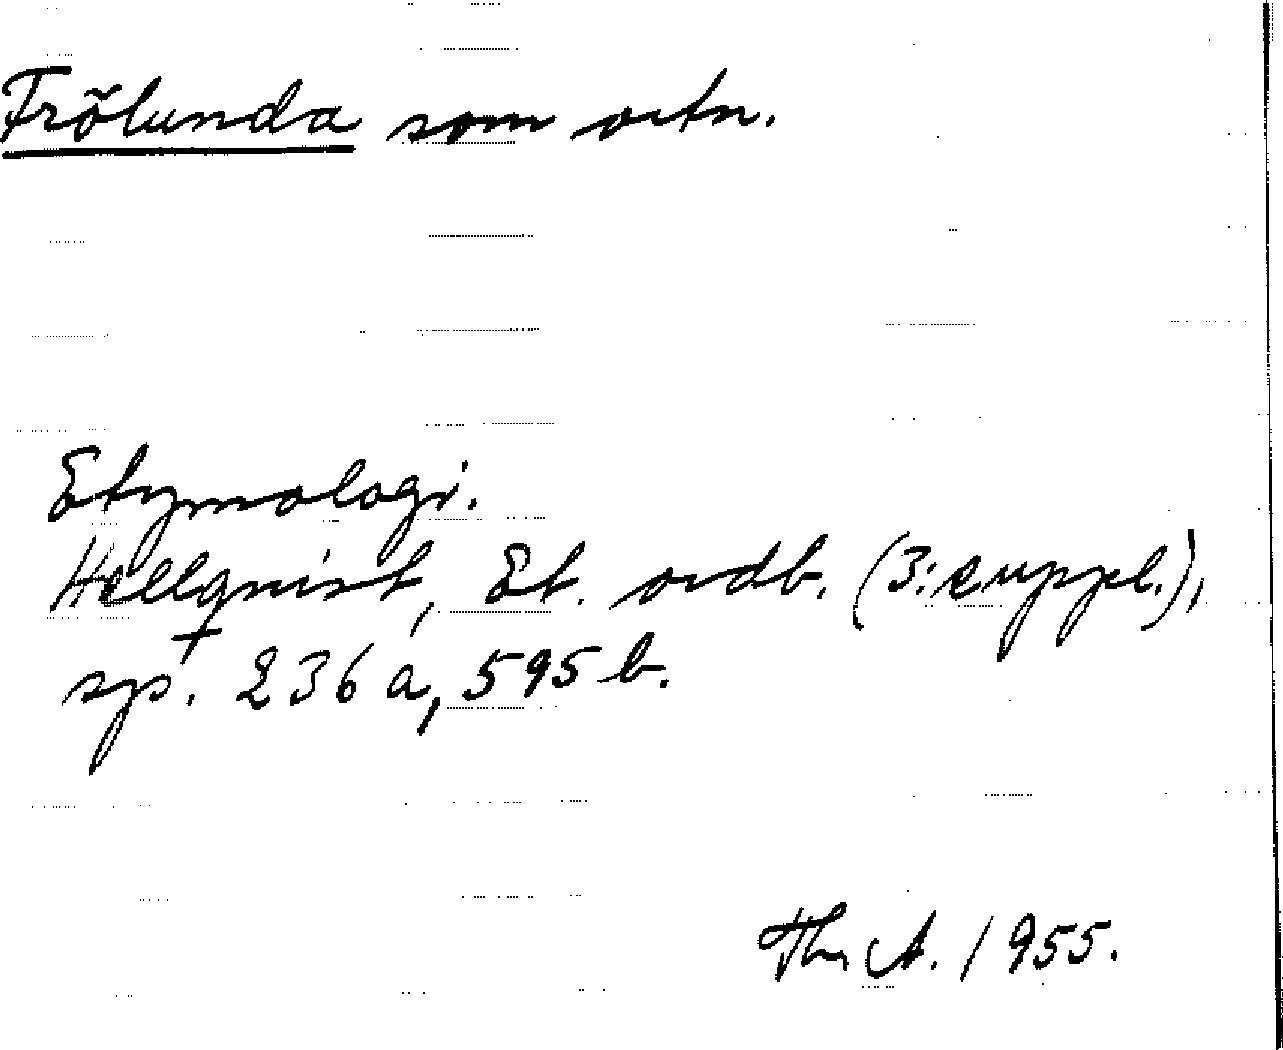 Frölunda som ortn.
Etymologi.
Hellquist, Et. ordb. (3: e uppl.),
sp. 236 a, 595 b.
Th. A. 1955.